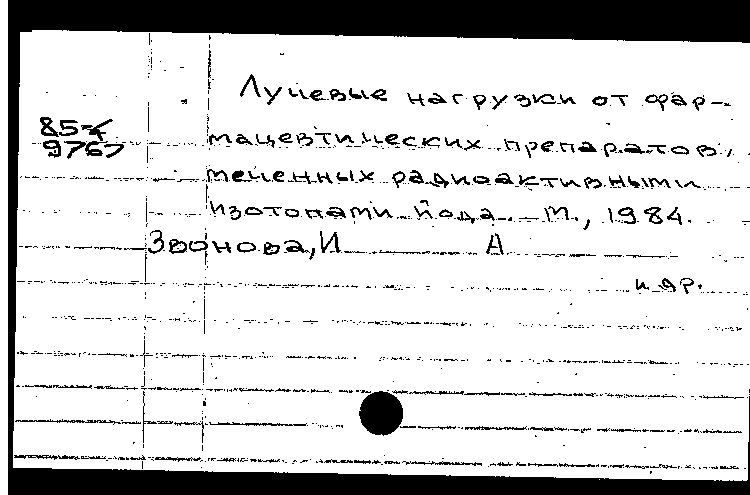 Лучевые нагрузки от фар-
85-4
9767
мацевтических препаратов,
меченных радиоактивными
изотопами йода. М., 1984.
Звонова, И А
и др.